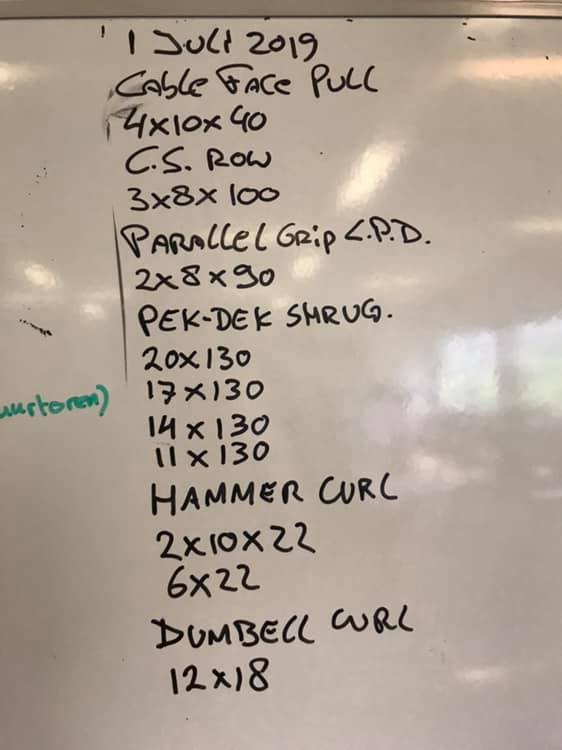 1 JULI 2019
CABLE FACE PULL
4x10x40
C.S. ROW
3x8x100
PARALLEL GRIP L.P.D.
2x8x90
PEK-DEK SHRUG.
20x130
17x130
14x130
11x130
HAMMER CURL
2x10x22
6x22
DUMBELL CURL
12x18